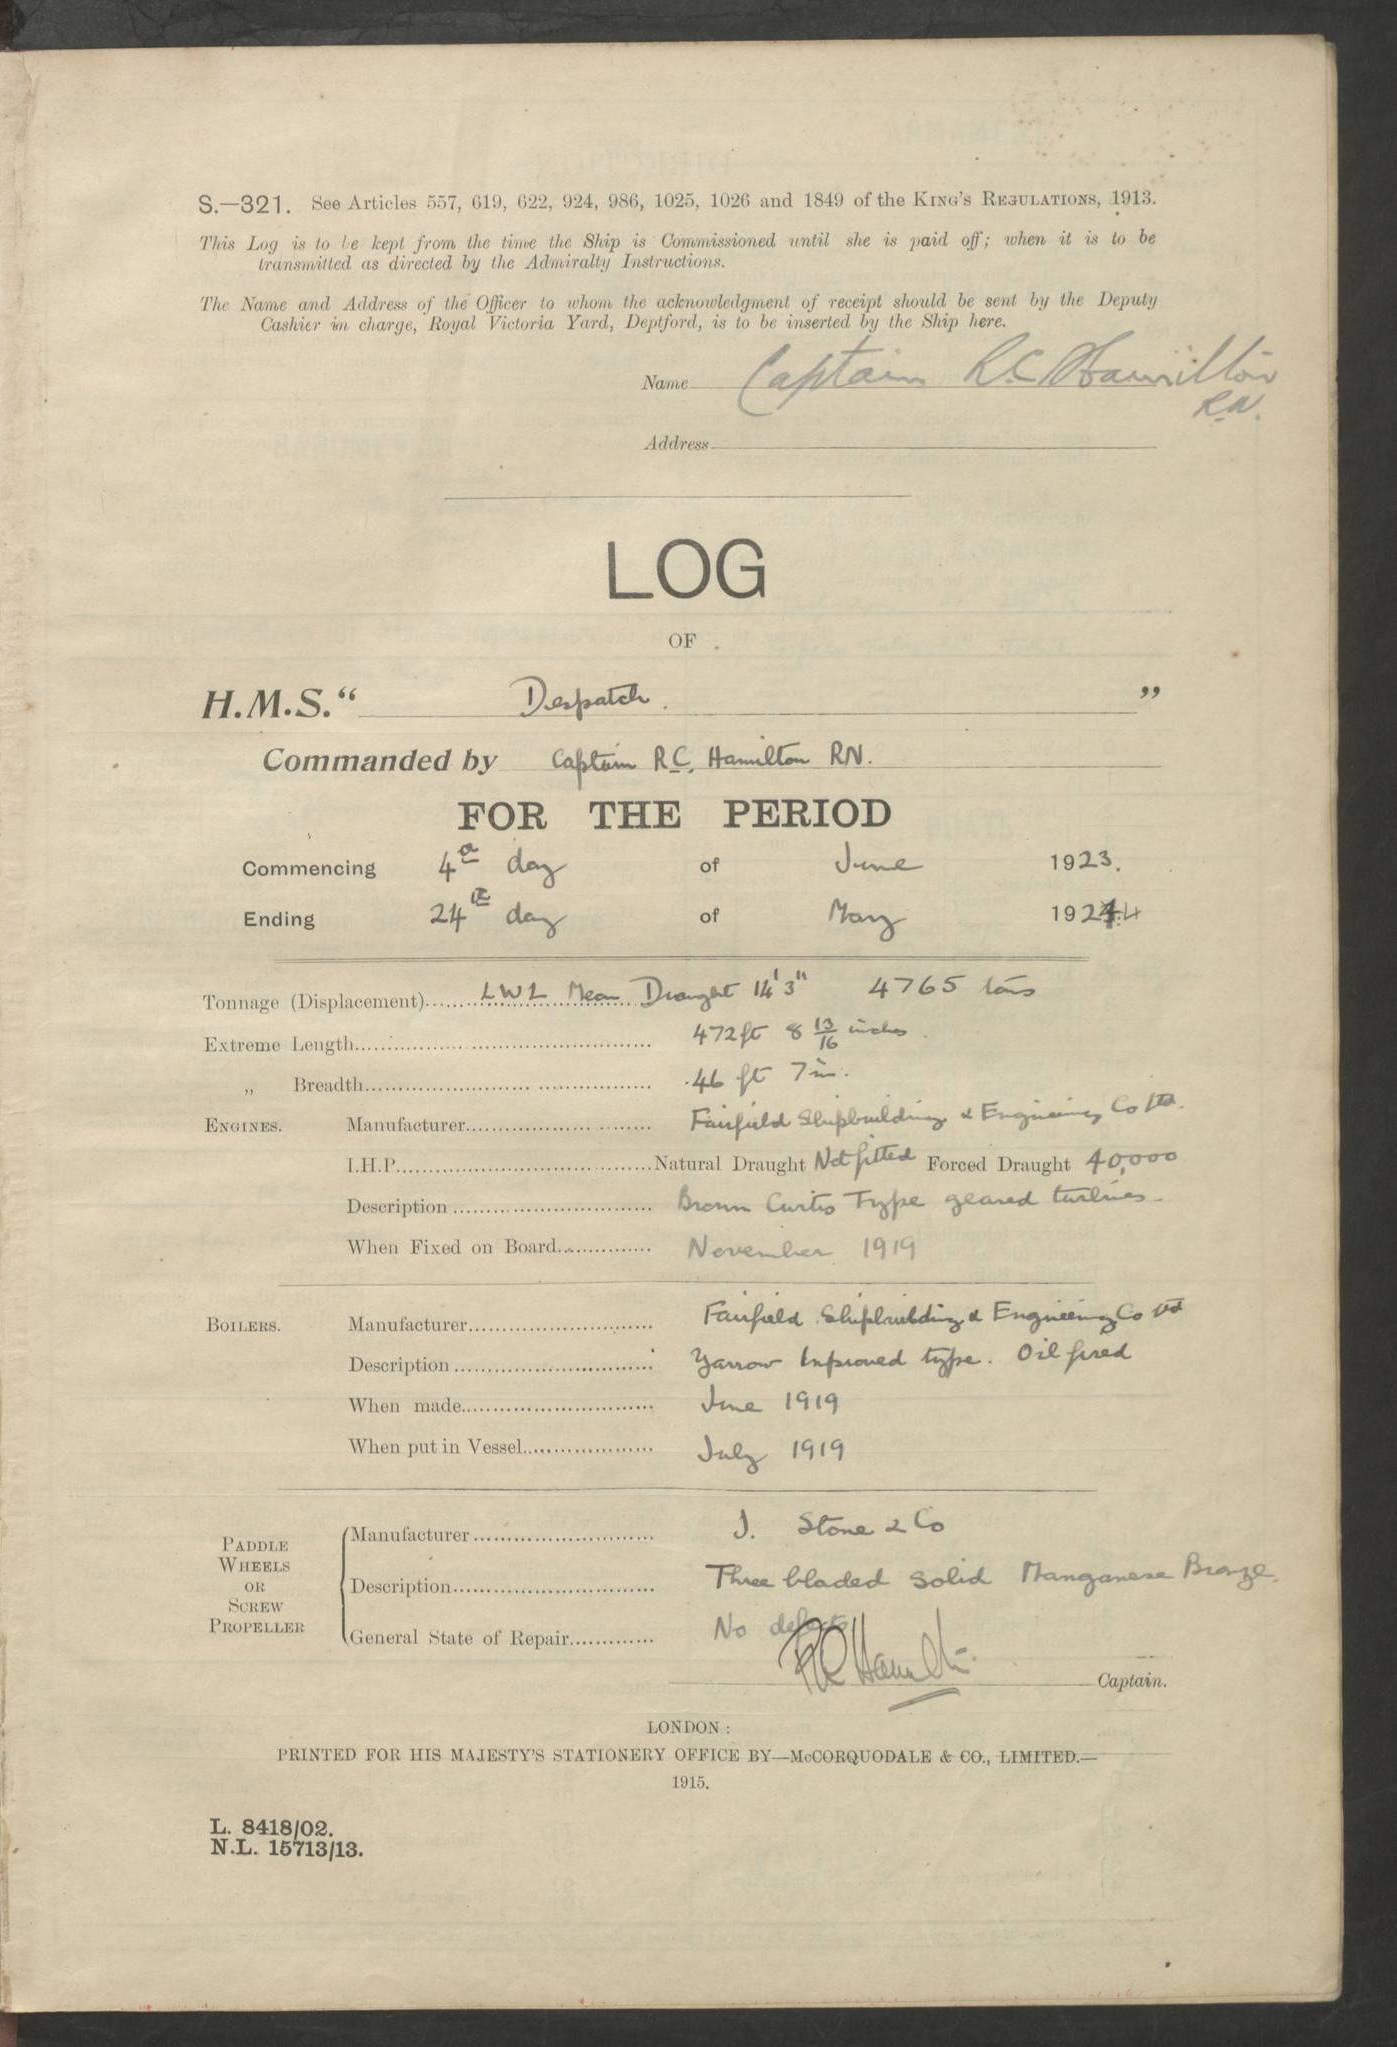 S.—321. See Articles 557, 619, 622, 924, 986, 1025, 1026 and 1849 of the KING'S REGULATIONS, 1913.
This Log is to be kept from the time the Ship is Commissioned until she is paid off; when it is to be
transmitted as directed by the Admiralty Instructions.
The Name and Address of the Officer to whom the acknowledgment of receipt should be sent by the Deputy
Cashier in charge, Royal Victoria Yard, Deptford, is to be inserted by the Ship here.
Name Captain R.C Hamilton
R.N.
Address
LOG
OF
H.M.S. “ Despatch. ”
Commanded by Captain R.C. Hamilton RN.
FOR THE PERIOD
Commencing 4th day of June 1923.
Ending 24th day of May 1924
Tonnage (Displacement) LWL Mean Draught 14' 3" 4765 tons
Extreme Length 472 ft 8 13/16 inches.
„ Breadth 46 ft 7 in.
ENGINES. Manufacturer Fairfield Shipbuilding & Engineering Co Ltd.
I.H.P. Natural Draught Not fitted Forced Draught 40,000
Description Brown Curtis Type geared turbines.
When Fixed on Board November 1919
BOILERS. Manufacturer Fairfield Shipbuilding & Engineering Co Ltd
Description Yarrow Improved type. Oil fired
When made June 1919
When put in Vessel July 1919
PADDLE WHEELS OR SCREW PROPELLER
Manufacturer J. Stone & Co
Description Three bladed solid Manganese Bronze.
General State of Repair No defects
RC Hamilton Captain.
LONDON :
PRINTED FOR HIS MAJESTY'S STATIONERY OFFICE BY—McCORQUODALE & CO., LIMITED.—
1915.
L. 8418/02.
N.L. 15713/13.